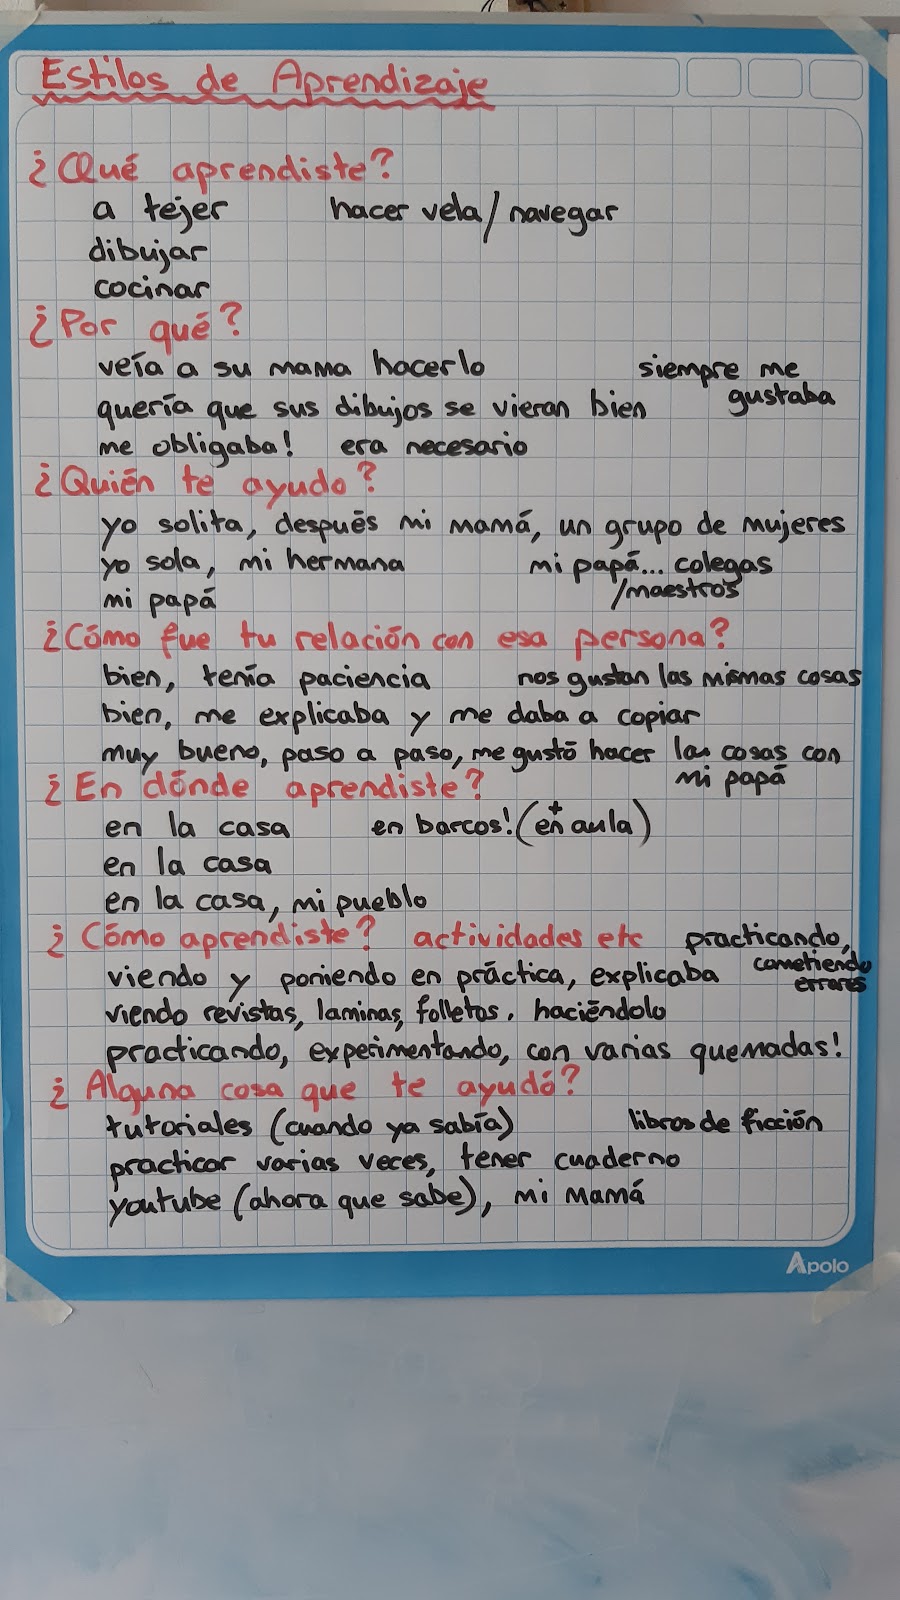 Estilos de Aprendizaje
¿Qué aprendiste?
a tejer hacer vela/navegar
dibujar
cocinar
¿Por qué?
veía a su mama hacerlo siempre me
quería que sus dibujos se vieran bien gustaba
me obligaba! era necesario
¿Quién te ayudo?
yo solita, después mi mamá, un grupo de mujeres
yo sola, mi hermana mi papá... colegas
mi papá /maestros
¿Cómo fue tu relación con esa persona?
bien, tenía paciencia nos gustan las mismas cosas
bien, me explicaba y me daba a copiar
muy bueno, paso a paso, me gustó hacer las cosas con
mi papá
¿En dónde aprendiste?
en la casa en barcos! (+ en aula)
en la casa
en la casa, mi pueblo
¿Cómo aprendiste? actividades etc practicando,
viendo y poniendo en práctica, explicaba cometiendo
errores
viendo revistas, laminas, folletos. haciéndolo
practicando, experimentando, con varias quemadas!
¿Alguna cosa que te ayudó?
tutoriales (cuando ya sabía) libros de ficción
practicar varias veces, tener cuaderno
youtube (ahora que sabe), mi mamá
Apolo